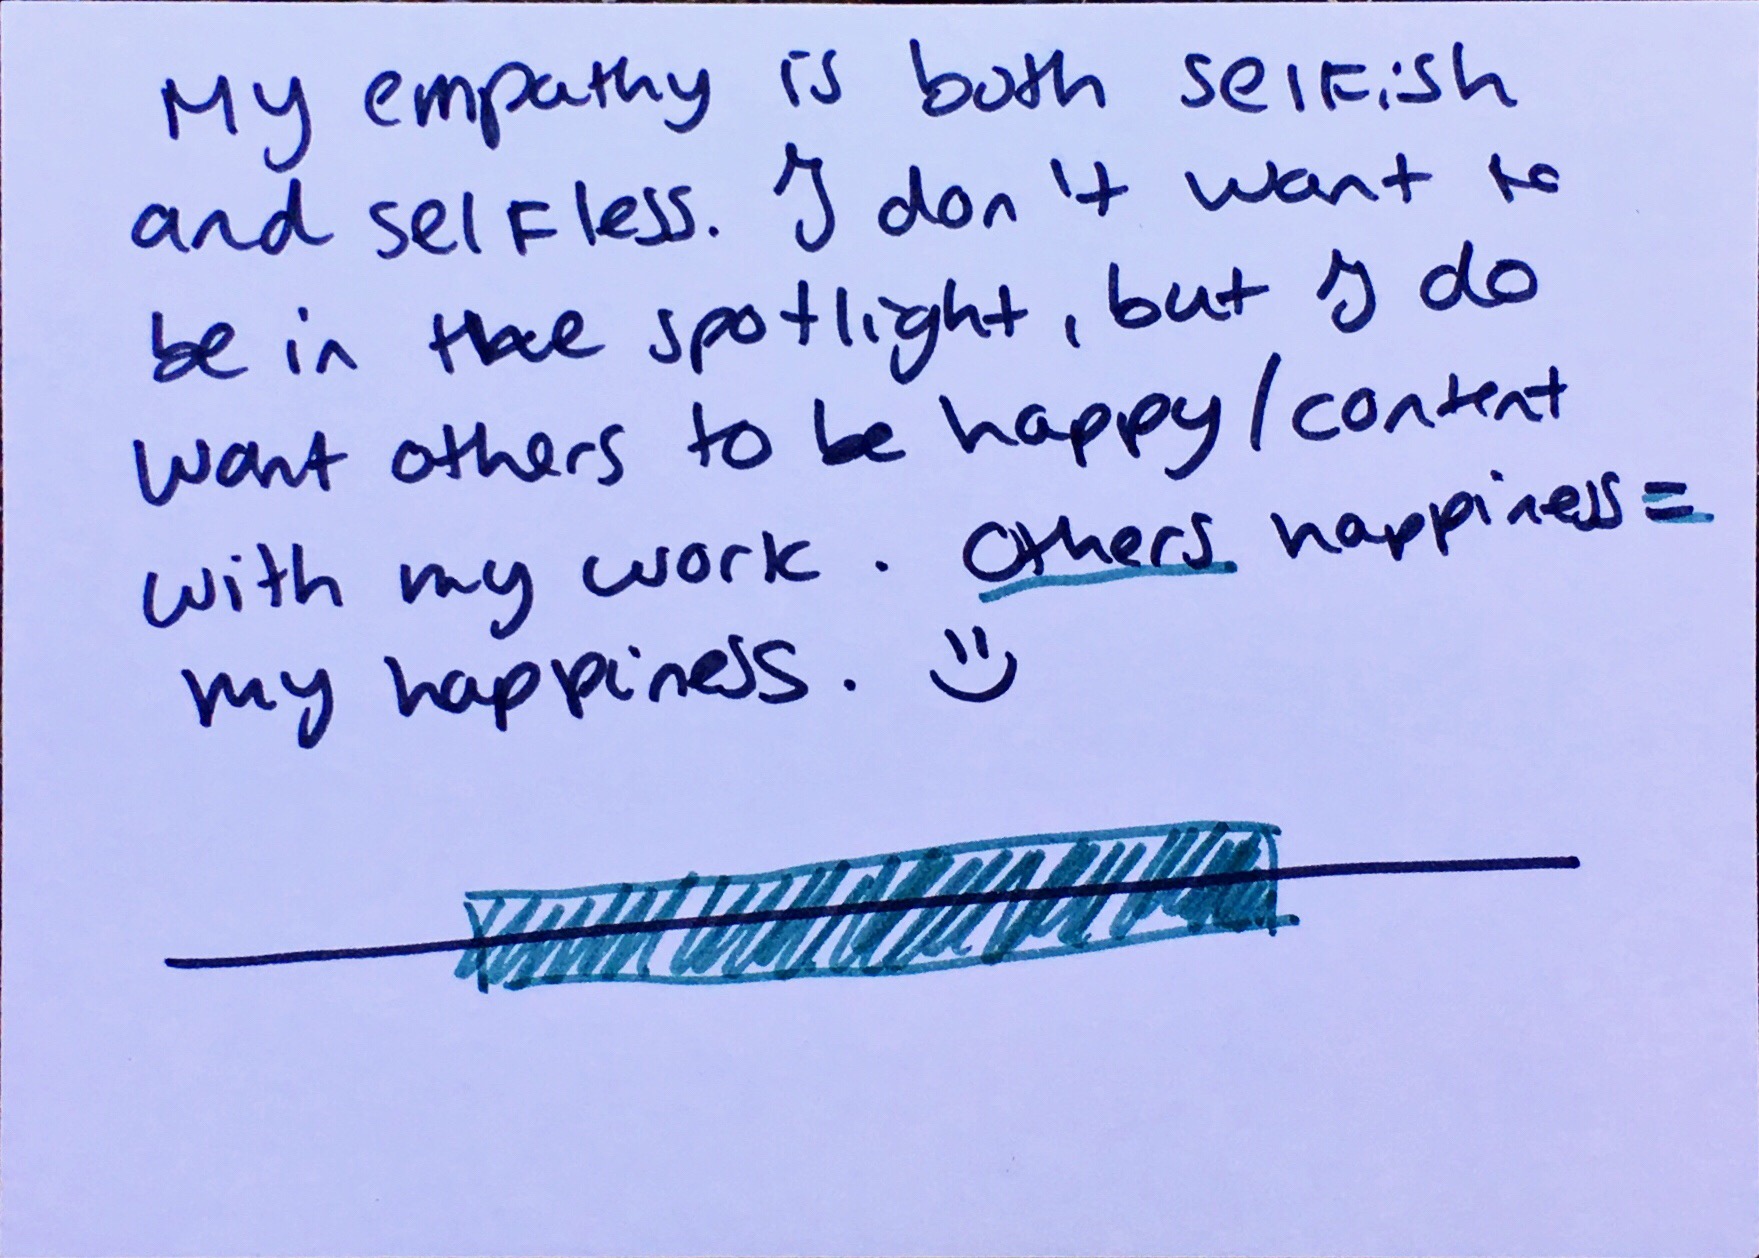 My empathy is both selfish
and selfless. I don't want to
be in the spotlight, but I do
want others to be happy/content
with my work. Others happiness =
my happiness. :)